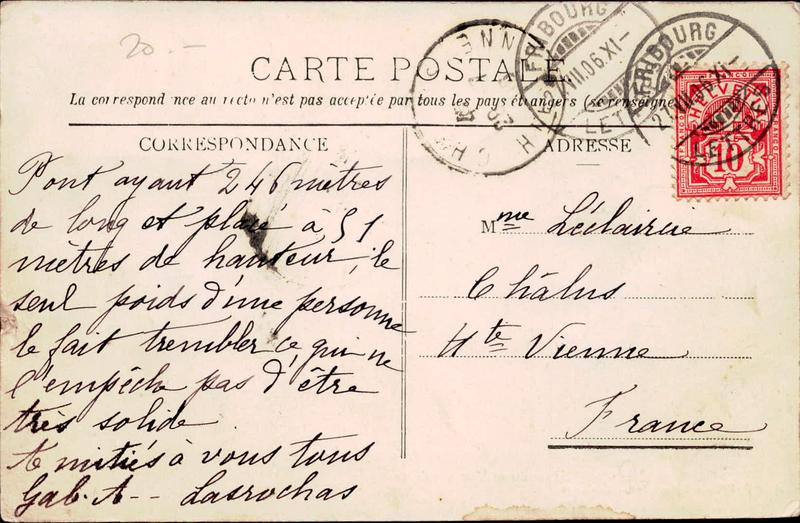 20.-
CARTE POSTALE
La correspondance au recto n'est pas acceptée par tous les pays étrangers (se renseigne
CORRESPONDANCE
Pont ayant 246 mètres
de long et placé à 51
mètres de hauteur, le
seul poids d'une personne
le fait trembler ce qui ne
l'empêche pas d'être
très solide.
Amitiés à vous tous
Gab. A-- Lasrochas
ADRESSE
Mme Léclaircie
Châlus
Hte Vienne
France
FRIBOURG
VII.06.XI-
LET
FRIBOURG
21.VII.06.XI-
LETTR
HELVETIA
10